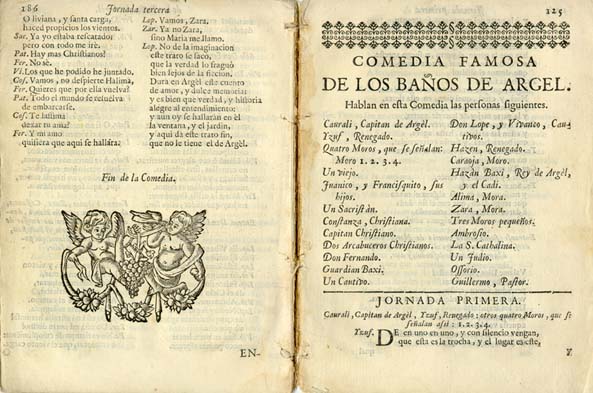 186 Jornada tercera
O liviana, y santa carga,
haced propicios los vientos.
Sac. Ya yo estaba rescatado
pero con todo me irè.
Pat. Hay mas Christianos?
Fer. No sè.
Vi. Los que he podido he juntado.
Cos. Vamos, no despierte Halima,
Fer. Quieres que por ella vuelva?
Pat. Todo el mundo se resuelva
de embarcarse.
Fer. Y mi amo
quisiera que aqui se hallara.
Lop. Vamos, Zara.
Zar. Ya no Zara,
sino Maria me llamo.
Lop. No de la imaginacion
este trato se sacò,
que la verdad lo fraguò
bien lejos de la ficcion.
Dura en Argèl este cuento
de amor, y dulce memoria;
y es bien que verdad, y historia
alegre al entendimiento;
y aun oy se hallaràn en èl
la ventana, y el jardin,
y aqui dà este trato fin,
que no le tiene el de Argèl.
Fin de la Comedia.
EN-
125
COMEDIA FAMOSA
DE LOS BAÑOS DE ARGEL.
Hablan en esta Comedia las personas siguientes.
Caurali, Capitan de Argèl.
Yzuf, Renegado.
Quatro Moros, que se señalan:
Moro 1. 2. 3. 4.
Un viejo.
Juanico, y Francisquito, sus
hijos.
Un Sacristàn.
Constanza, Christiana.
Capitan Christiano.
Dos Arcabuceros Christianos.
Don Fernando.
Guardian Baxi.
Un Cautivo.
Don Lope, y Vivanco, Cau-
tivos.
Hazen, Renegado.
Caraoja, Moro.
Hazàn Baxi, Rey de Argèl,
y el Cadi.
Alima, Mora.
Zara, Mora.
Tres Moros pequeños.
Ambrosio.
La S. Cathalina.
Un Judio.
Ossorio.
Guillermo, Pastor.
JORNADA PRIMERA.
Caurali, Capitan de Argèl, Yzuf, Renegado: otros quatro Moros, que se
señalan assi: 1. 2. 3. 4.
Yzuf. DE en uno en uno, y con silencio vengan,
que esta es la trocha, y el lugar es este,